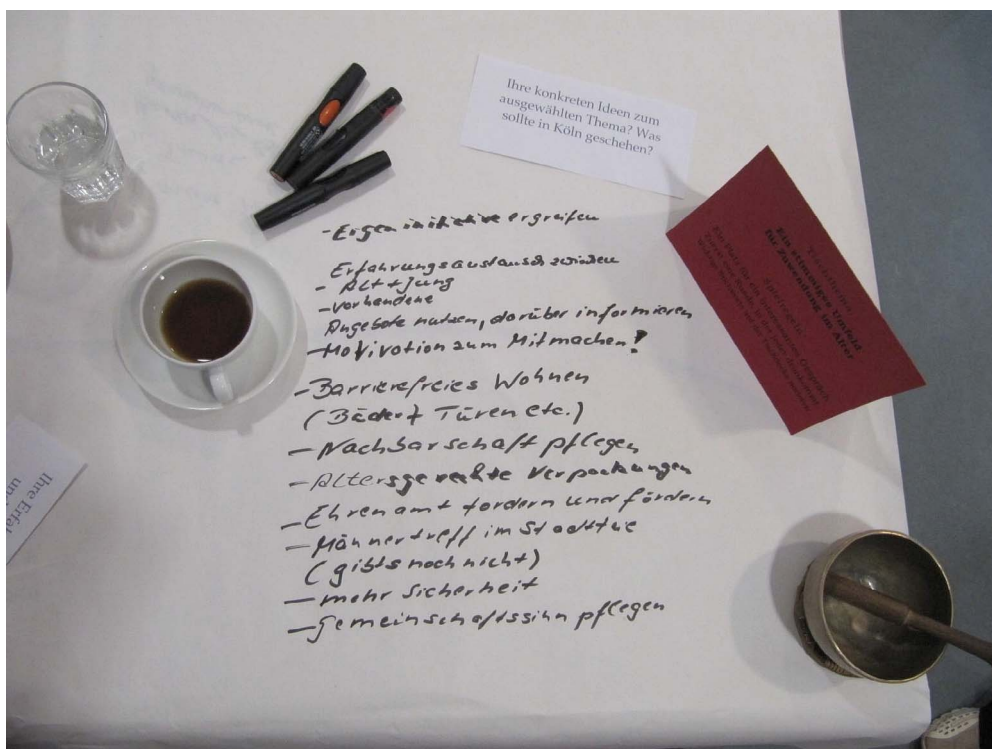 Ihre konkreten Ideen zum
ausgewählten Thema? Was
sollte in Köln geschehen?
Tischthema:
Ein stimmiges Umfeld
für Zuwendung im Alter
Spielregeln:
- Eigeninitiative ergreifen
Erfahrungsaustausch zwischen
- Alt + Jung
- Vorhandene
Angebote nutzen, darüber informieren
- Motivation zum Mitmachen!
- Barrierefreies Wohnen
(Bäder + Türen etc.)
- Nachbarschaft pflegen
- Altersgerechte Verpackungen
- Ehrenamt fordern und fördern
- Männertreff im
(gibts noch nicht)
- mehr Sicherheit
- Gemeinschaftssinn pflegen
Ihre